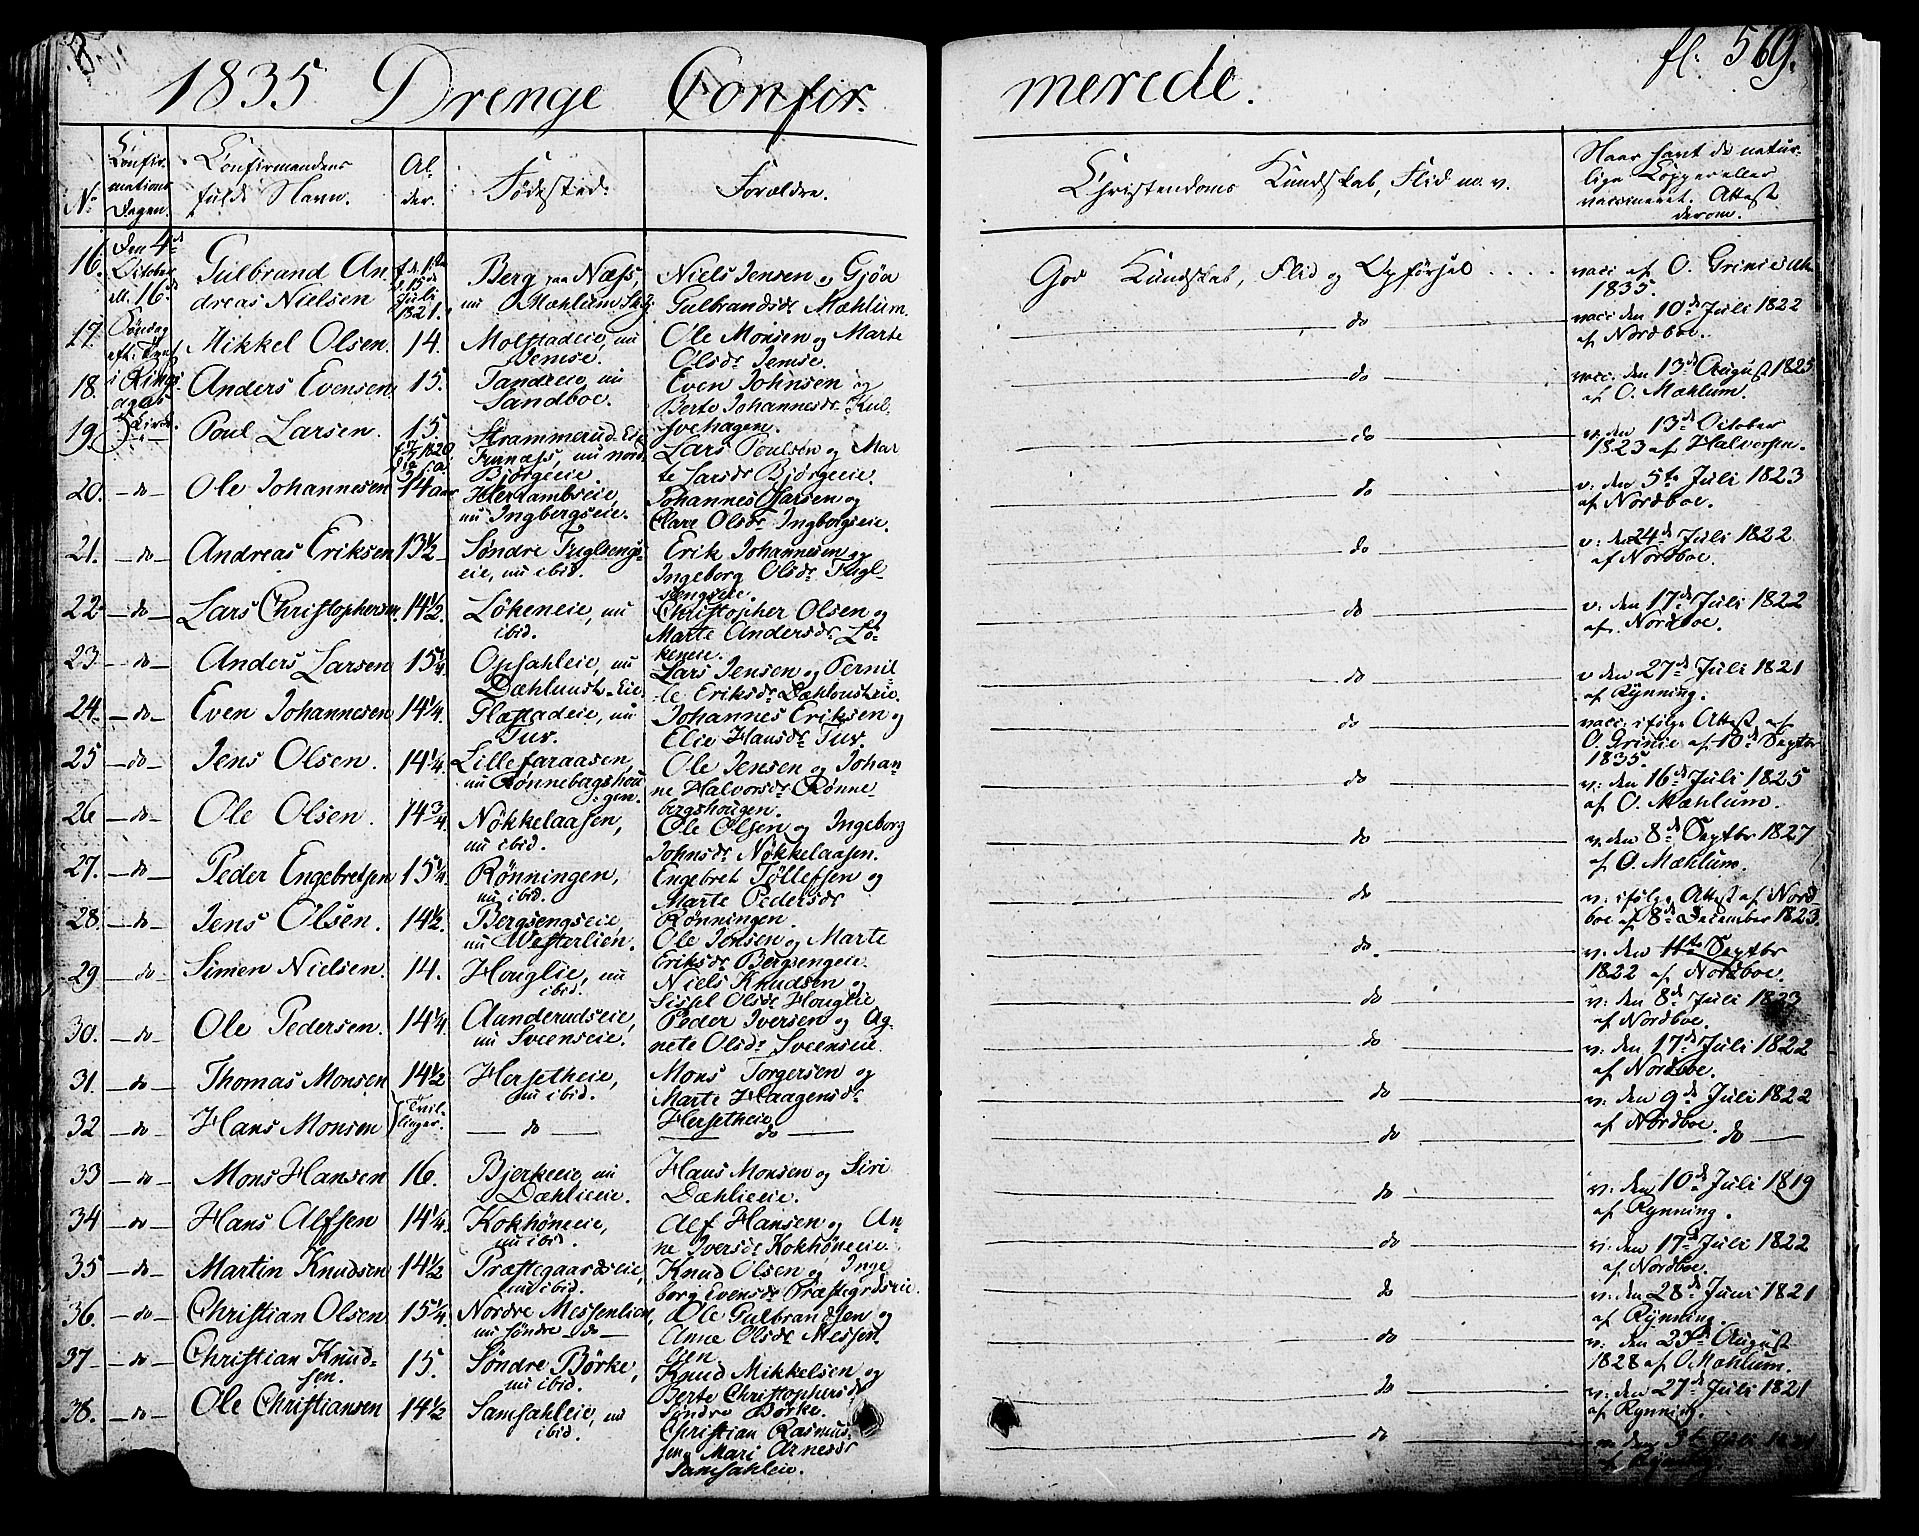 8
1835 Drenge Confir-
merede.
fl: 569.
No
Confir-
mations
Dagen.
Confirmandens
fulde Navn.
Al-
der.
Födested.
Forældre.
Christendoms Kundskab, Flid m. v.
Naar havt de natur-
lige Kopper eller
vaccineret. Attest
derom.
16.
Den 4de
October
Gulbrand An
dreas Nielsen
Juli
1821.
Berg paa Næss,
nu Mæhlum
Niels Jensen og Gjöa
Gulbrandsdr Mæhlum.
God Kundskab, Flid og Opförsel . . . .
vacc: af O. Grinie
1835.
17.
Mikkel Olsen.
14.
Molstadeie, nu
Jemse.
Ole Monsen og Marte
Olsdr Jemse.
do
vacc: den 10de Juli 1822
af Nordboe.
18.
Anders Evensen
15.
nu
Sandboe.
Even Johnsen og
Berte Johannesdr Kul-
svehagen.
do
vacc: den 13de August 1825
af O. Mæhlum.
19.
Poul Larsen.
15
Strammerud-Eie
Furnæss, nu nord
Bjørgeeie.
Lars Poulsen og Mar
te Larsdr Bjørgeeie.
do
v: den 13de October
1823 af Halvorsen.
20.
– do –
Ole Johannesen
14 aar
nu Ingbergseie.
Johannes Larsen og
Olsdr Ingborgseie.
do
v: den 5te Juli 1823
af Nordboe.
21.
– do –
Andreas Eriksen
13½
Søndre Fuglsengs-
eie, nu ibid.
Erik Johannesen og
Ingeborg Olsdr Fugl-
sengseie.
do
v: den 24de Juli 1822
af Nordboe.
22
– do –
Lars Christophersen.
14½.
Lökeneie, nu
ibid.
Christopher Olsen og
Marte Andersdr Lö-
keneie.
do
v: den 17de Juli 1822
af Nordboe.
23.
– do –
Anders Larsen
15¼
Opsahleie, nu
Dæhlunst-Eie
Lars Jensen og Pernil-
le Eriksdr Dæhlonsteie.
do
v den 27de Juli 1821
af Rynning.
24.
– do –
Even Johannesen
14¼.
Glæstadeie, nu
Tur.
Johannes Eriksen og
Elie Hansdr Tur.
do
vacc: ifølge Attest af
O. Grinie af 10de Septbr
1835.
25
– do –
Jens Olsen.
14¼.
Lillefaraasen,
nu Rønnebergshou
gen.
Ole Jensen og Johan-
ne Halvorsdr Rønne-
bergshougen.
do
v: den 16de Juli 1825
af O. Mæhlum.
26
– do –
Ole Olsen.
14¾
Nökkelaasen,
nu ibid.
Ole Olsen og Ingeborg
Johnsdr Nökkelaasen.
do
v: den 8de Septbr 1827
af O. Mæhlum.
27.
– do –
Peder Engebretsen
15¼.
Rönningen,
nu ibid.
Engebret Tøllefsen og
Marte Pedersdr
Rönningen.
do
v: ifølge Attest af Nord-
boe af 8de December 1823.
28.
– do –
Jens Olsen.
14½.
Bergsengseie,
nu Westerlien.
Ole Jonsen og Marte
Eriksdr Bergsengeie.
do.
v. den 11te Septbr
1822 af Nordboe.
29
– do
Simen Nielsen.
14.
Houglie, nu
ibid.
Niels Knudsen og
Sissel Olsdr Houglie
do
v: den 8de Juli 1823
af Nordboe.
30.
– do –
Ole Pedersen.
14¼.
Aanderudseie,
nu Sveenseie.
Peder Iversen og Ag-
nete Olsdr Sveenseie
do
v: den 17de Juli 1822
af Nordboe.
31.
– do –
Thomas Monsen
14½
Hersetheie,
nu ibid.
Mons Torgersen og
Marte Haagensdr
Hersetheie
do
v: den 9de Juli 1822
af Nordboe.
32
– do –
Hans Monsen
Tvil-
linger.
— do —
— do —
do
— do —
33
– do –
Mons Hansen
16.
Bjerkeeie, nu
Dæhlieeie.
Hans Monsen og Siri
Dæhlieeie.
do
v: den 10de Juli 1819
af Rynning.
34
– do –
Hans Alfsen
14¼.
Kokhöneeie,
nu ibid.
Alf Hansen og An-
ne Iversdr Kokhöneeie.
do
v: den 17de Juli 1822
af Nordboe.
35
– do –
Martin Knudsen
14½
Præstegaardseie,
nu ibid.
Knud Olsen og Inge
borg Evensdr Præstegrdseie.
do
v: den 28de Juni 1821
af Rynning.
36.
– do –
Christian Olsen
15¼.
Nordre Messenlien,
nu söndre do —
Ole Gulbrandsen og
Anne Olsdr Messen-
lien
do
v: den 23de August
1828 af O. Mæhlum.
37
– do –
Christian Knud-
sen.
15.
Söndre Börke,
nu ibid.
Knud Mikkelsen og
Berte Christophersdr
Söndre Börke.
do
v: den 27de Juli 1821
af Rynning.
38.
– do –
Ole Christiansen
14½
Samsahleie, nu
ibid.
Christian Rasmus-
sen og Mari Arnesdr
Samsahleie.
do
af Rynning.